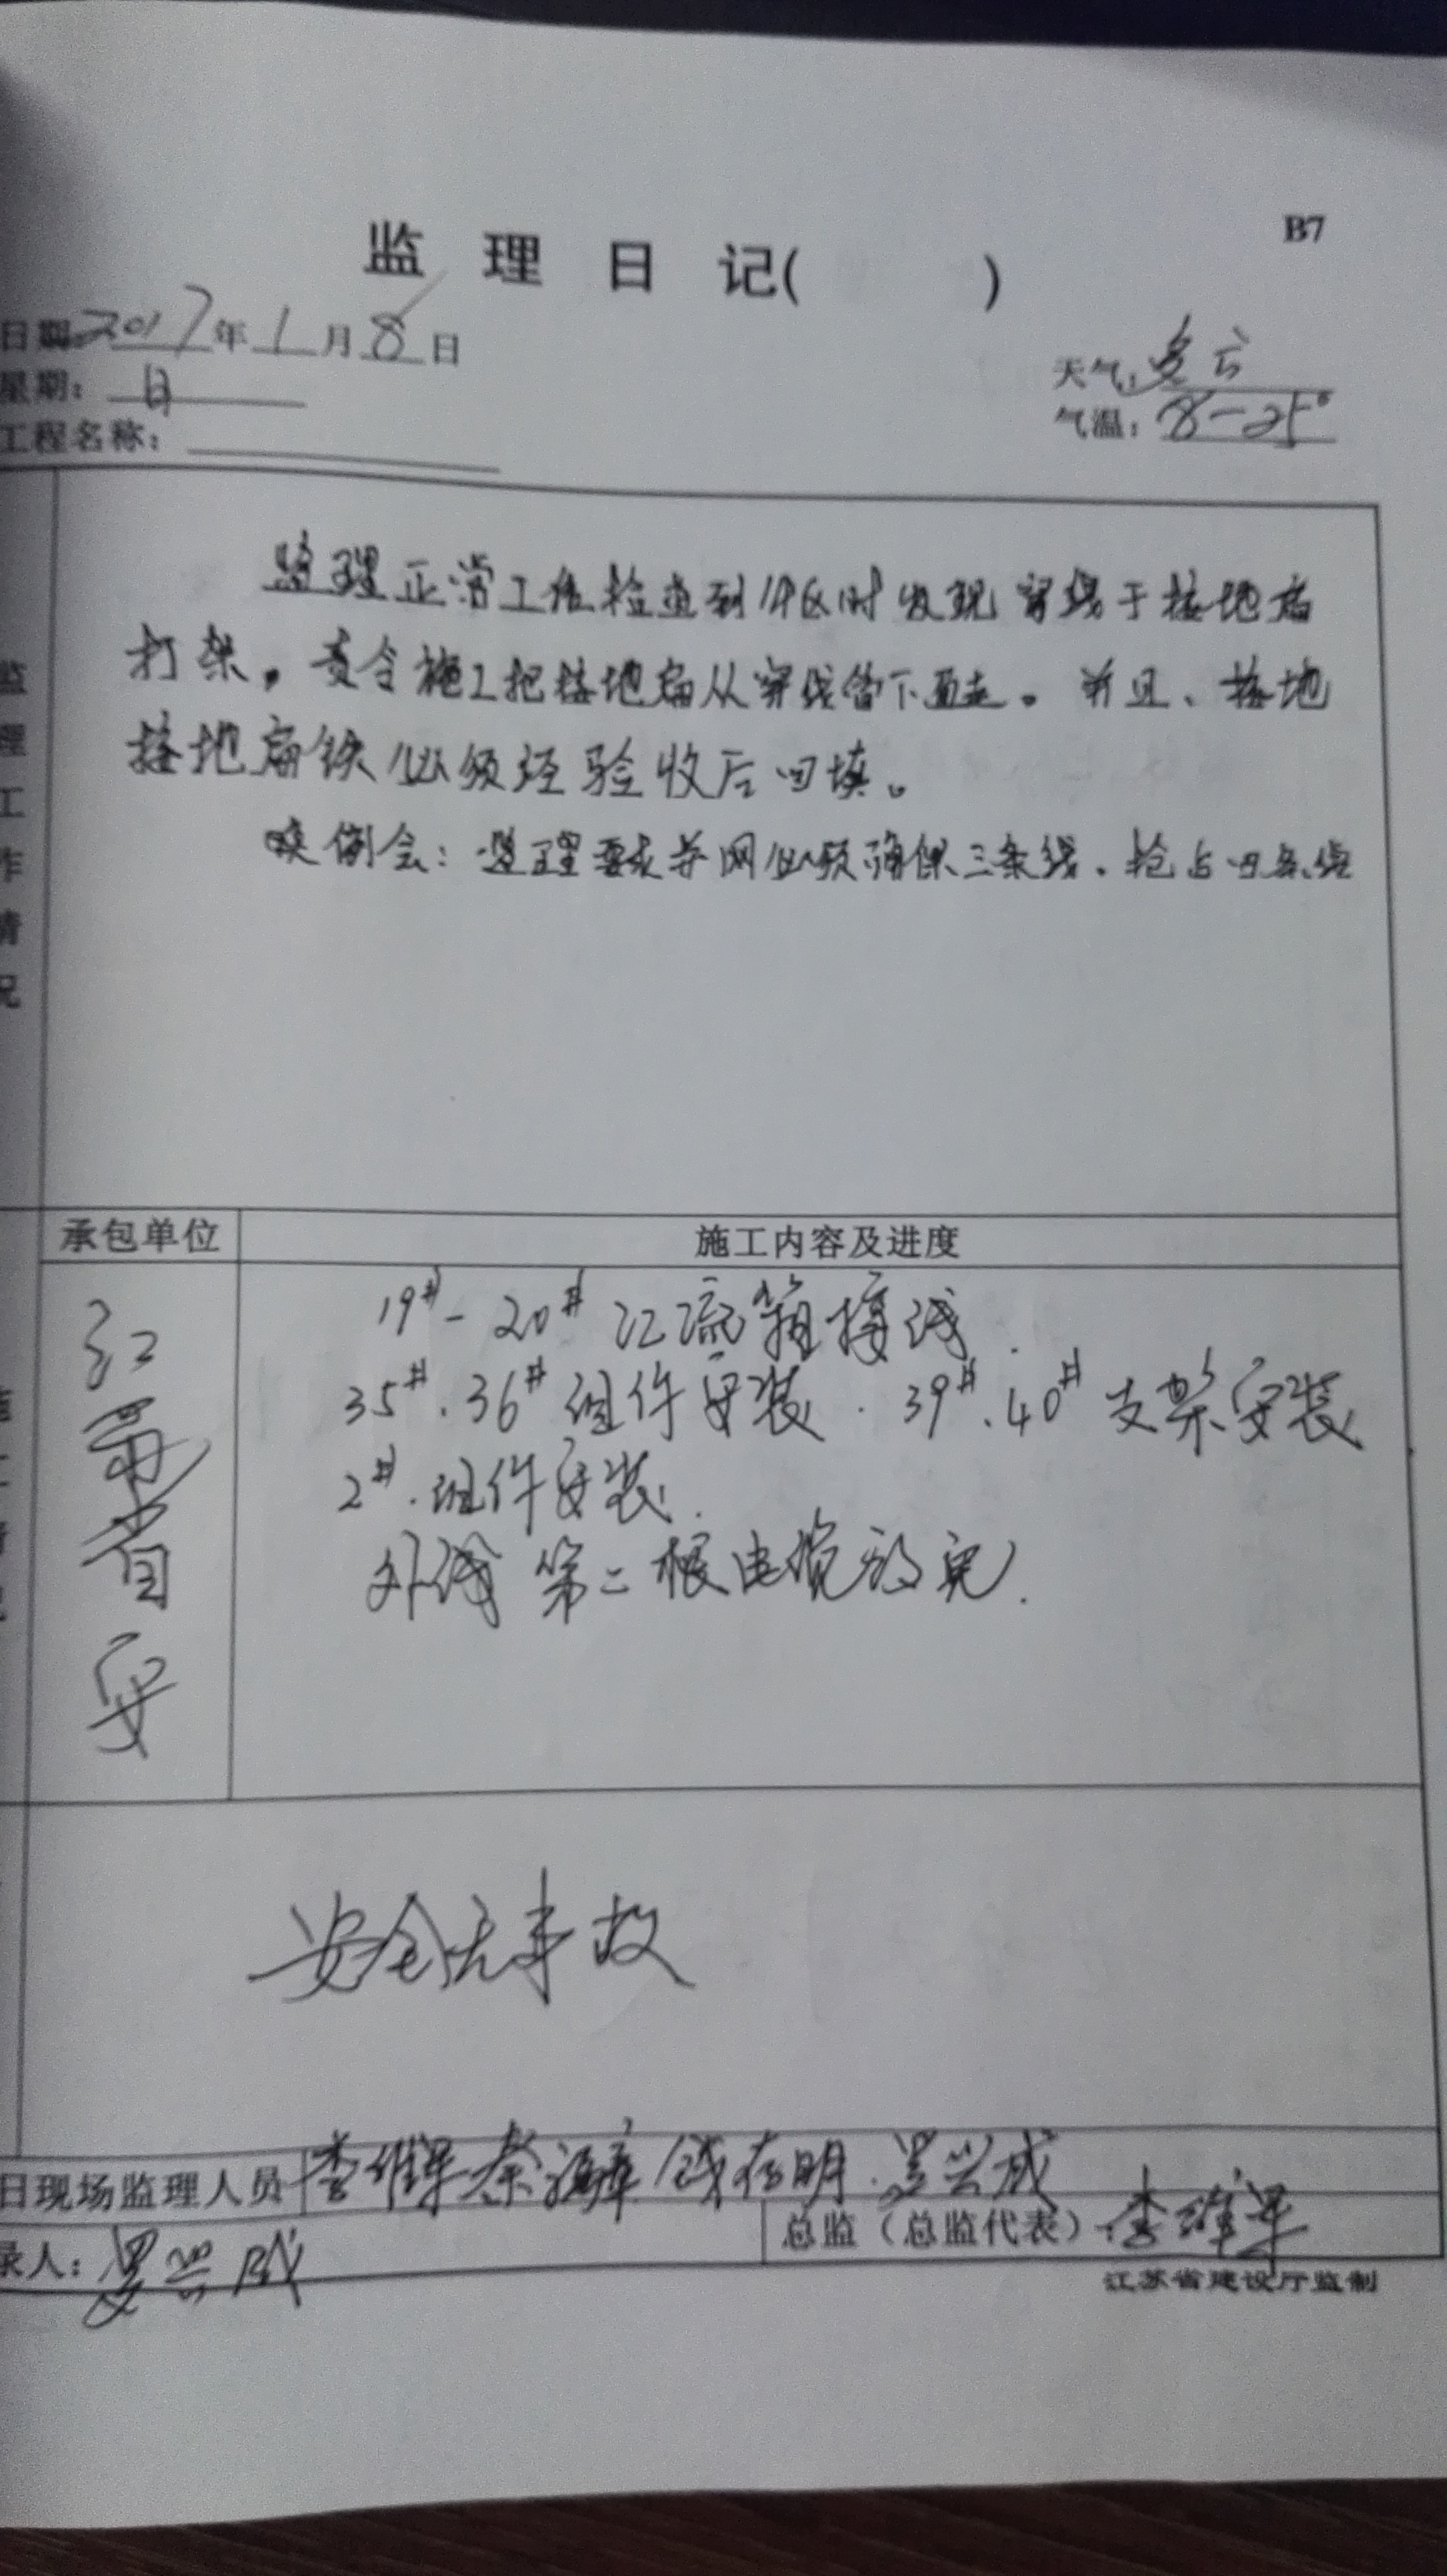 B7
监 理 日 记( )
日期 2017年1月8日
天气: 多云
星期: 日
气温: 8-25°
工程名称:
监理正常工作检查到19区时发现穿线于接地扁
打架。责令施工把接地扁从穿线管下面走。并且、接地
接地扁铁必须经验收后回填。
例会: 监理要求并网必须确保三条线、抢占四条线
监理工作情况
承包单位
施工内容及进度
江苏省安
19#-20# 汇流箱接线.
35#.36#组件安装.39#.40#支架安装
2#.组件安装.
外线第二根电缆放完.
安全无事故
日现场监理人员 李维军 秦海军 钱在明.吴兴成
录人: 吴兴成
总监(总监代表): 李维军
江苏省建设厅监制